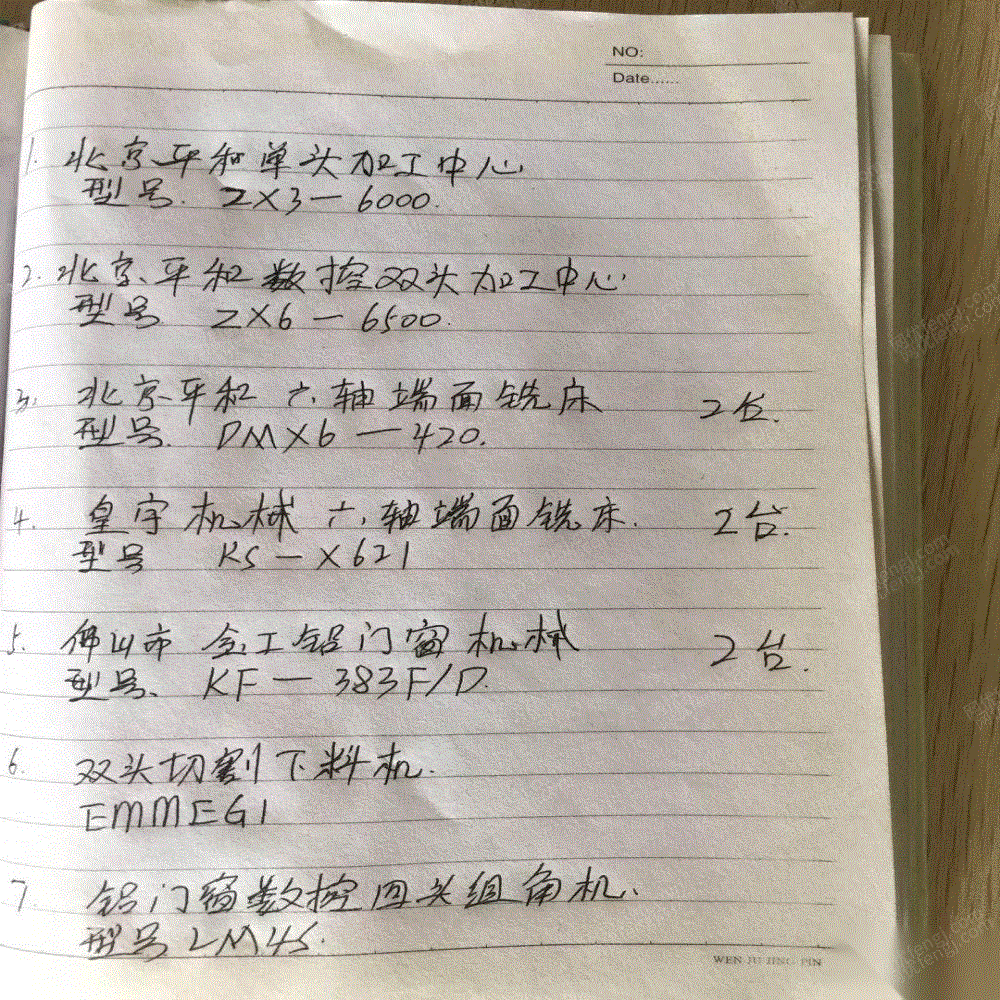 NO:
Date......
1. 北京平和单头加工中心
型号. ZX3-6000.
2. 北京平和数控双头加工中心
型号 ZX6-6500.
3. 北京平和六轴端面铣床 2台.
型号. DMX6-420.
4. 皇宇机械六轴端面铣床. 2台.
型号 KS-X621
5. 佛山市金工铝门窗机械 2台.
型号、KF-383F/D.
6. 双头切割下料机.
EMMEGI
7. 铝门窗数控四头组角机.
型号LM4S.
WEN JU JING PIN